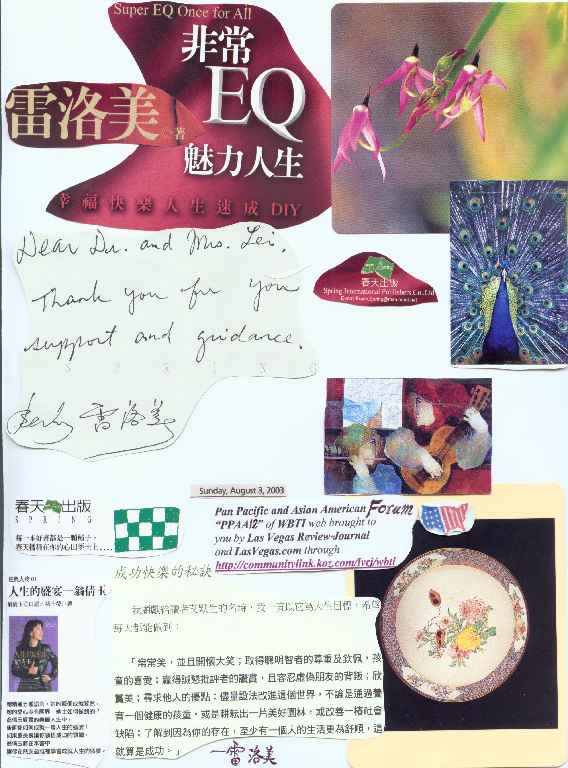 Super EQ Once for All
非常
EQ
魅力人生
雷洛美 著
幸福快樂人生速成 DIY
Dear Dr. and Mrs. Lei,
Thank you for your
support and guidance.
SPRING
雷洛美
春天出版
Spring International Publishers Co.,Ltd
Sunday, August 3, 2003
Pan Pacific and Asian American Forum
"PPAAF" of WBTI web brought to
you by Las Vegas Review-Journal
and LasVegas.com through
http://communitylink.koz.com/lvrj/wbti
春天出版
SPRING
每一本好書都是一顆種子，
春天播種在你的心田夢土上.....
人生的盛宴一翁倩玉
成功快樂的秘訣
每人都能做到：
「常常笑，並且開懷大笑；取得聰明智者的尊重及欽佩，孩
童的喜愛；贏得誠懇批評者的讚賞，且容忍虛偽朋友的背叛；欣
賞美；尋求他人的優點；儘量設法改進這個世界，不論是通過養
有一個健康的孩童，或是耕耘出一片美好園林，或改善一樁社會
缺陷；了解到因為你的存在，至少有一個人的生活更為舒順，這
就算是成功。」
一雷洛美